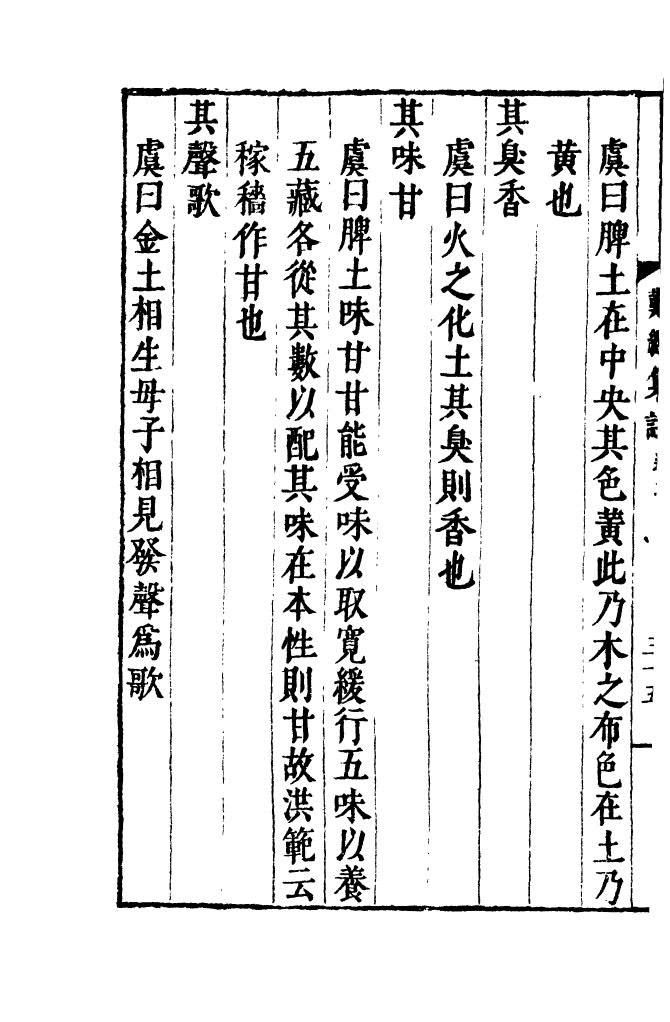 虞曰脾土在中央其色黃此乃木之布色在土乃
黃也
其臭香
虞曰火之化土其臭則香也
其味甘
虞曰脾土味甘甘能受味以取寬緩行五味以養
五藏各從其數以配其味在本性則甘故洪範云
稼穡作甘也
其聲歌
虞曰金土相生母子相見發聲爲歌